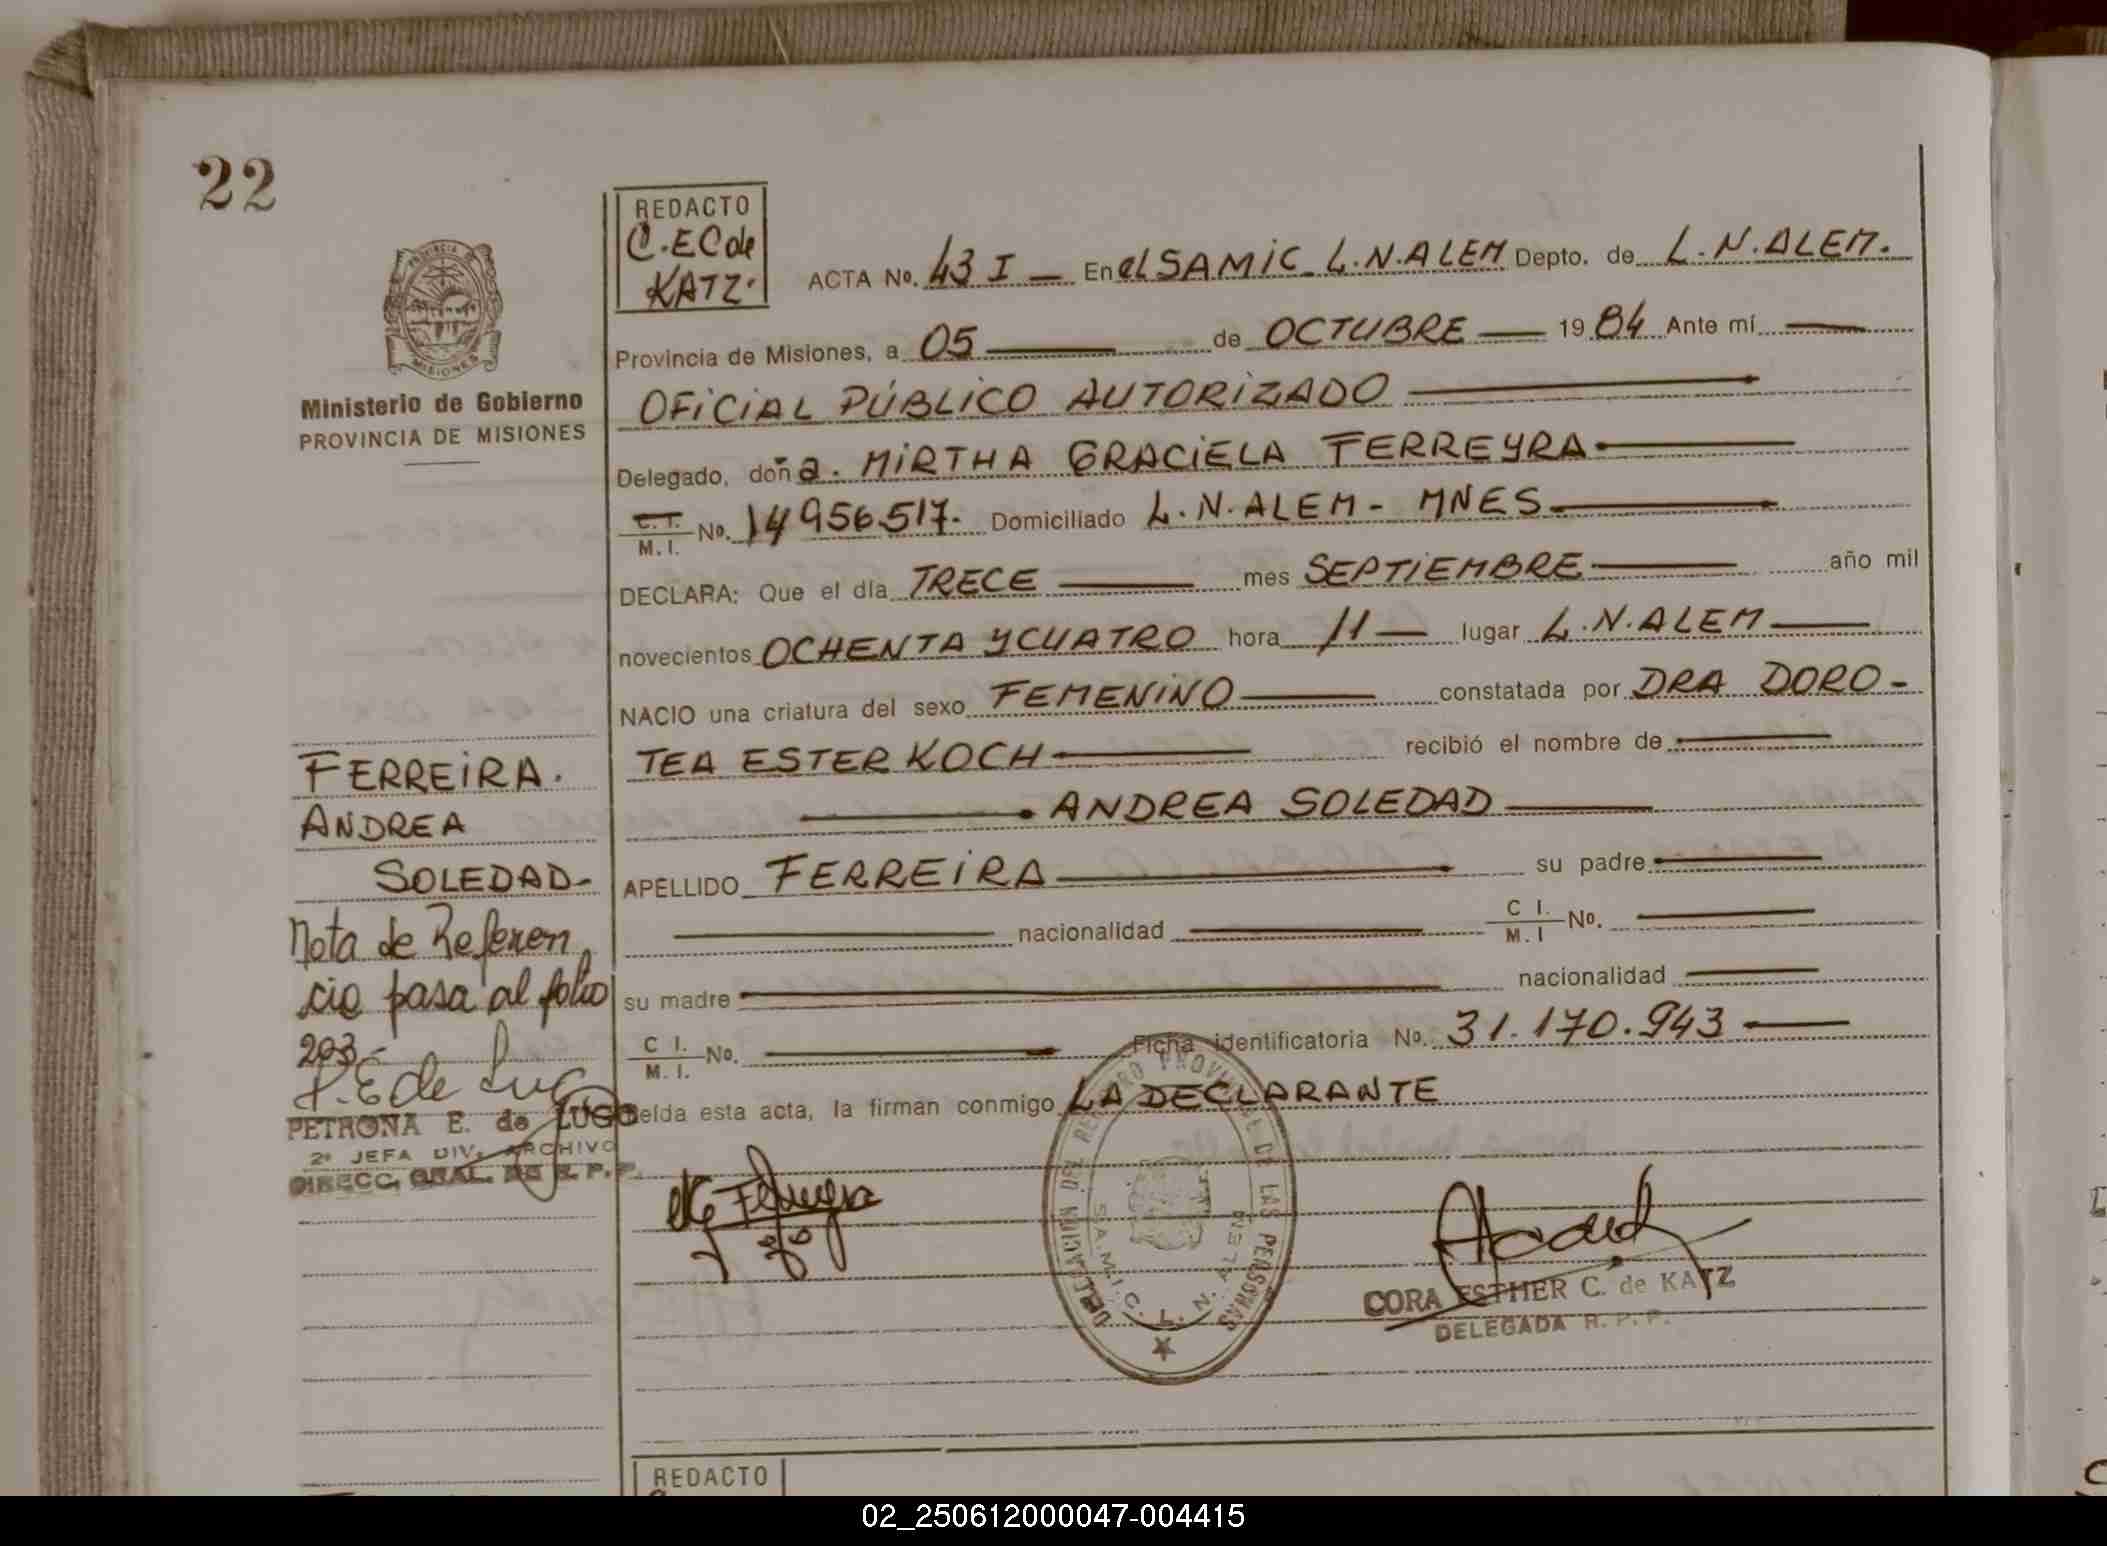 22
REDACTO
C.EC de
KATZ.
ACTA Nº. 43 I — En el SAMIC L.N.ALEM Depto. de L.N.ALEM.
PROVINCIA
MISIONES
Ministerio de Gobierno
PROVINCIA DE MISIONES
Provincia de Misiones, a 05 — de OCTUBRE — 1984 Ante mí —
OFICIAL PÚBLICO AUTORIZADO —
Delegado, doña. MIRTHA GRACIELA FERREYRA —
C.I. / M.I. No. 14956517. Domiciliado L.N.ALEM - MNES —
DECLARA: Que el día TRECE — mes SEPTIEMBRE — año mil
novecientos OCHENTA Y CUATRO hora 11 — lugar L.N.ALEM —
NACIO una criatura del sexo FEMENINO — constatada por DRA DORO-
TEA ESTER KOCH — recibió el nombre de —
— ANDREA SOLEDAD —
APELLIDO FERREIRA — su padre —
— nacionalidad — C I. / M. I No. —
su madre — nacionalidad —
C I. / M. I. No. — Ficha identificatoria No. 31.170.943 —
elda esta acta, la firman conmigo LA DECLARANTE
FERREIRA.
ANDREA
SOLEDAD-
Nota de Referen
cia pasa al folio
203-
P. E de Lugo
PETRONA E. de LUGO
2ª JEFA DIV. ARCHIVO
DIRECC. GRAL. DE R. P. P.
DELEGACION DEL REGISTRO PROVINCIAL DE LAS PERSONAS
S.A.M.I.C. L. N. ALEM
CORA ESTHER C. de KATZ
DELEGADA R. P. P.
REDACTO
02_250612000047-004415